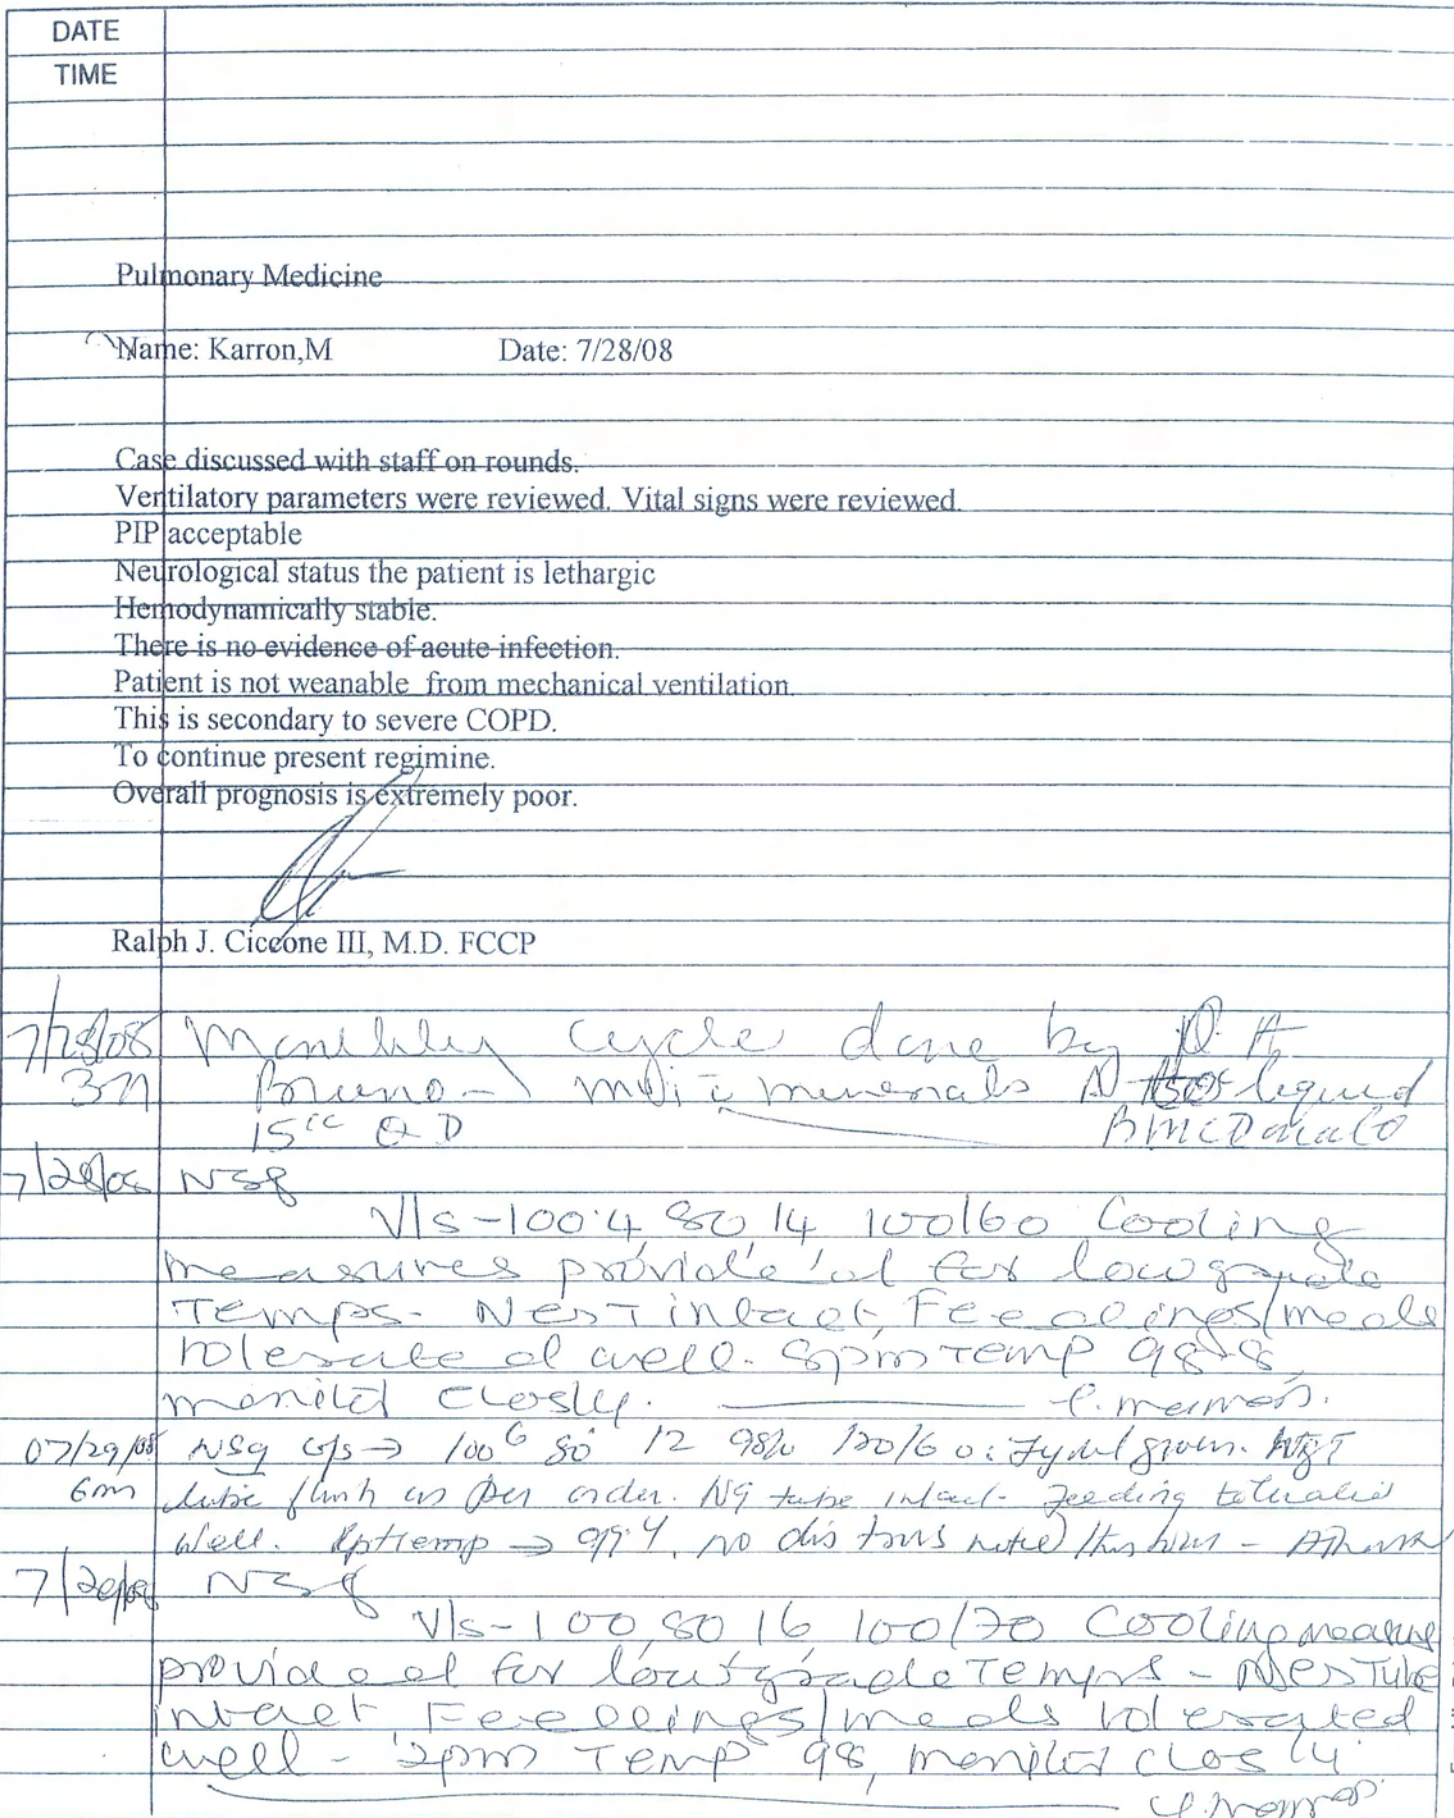 DATE
TIME
Pulmonary Medicine
Name: Karron,M Date: 7/28/08
Case discussed with staff on rounds.
Ventilatory parameters were reviewed. Vital signs were reviewed.
PIP acceptable
Neurological status the patient is lethargic
Hemodynamically stable.
There is no evidence of acute infection.
Patient is not weanable from mechanical ventilation.
This is secondary to severe COPD.
To continue present regimine.
Overall prognosis is extremely poor.
Ralph J. Ciccone III, M.D. FCCP
7/28/08 Monthly cycle done by
Bruno minerals liquid
15cc QD BMcDonald
7/28/08 NSg
V/s-100.4, 80, 14 100/60 Cooling
measures provide'd for low grade
Temps- intact, Feedings/meds
tolerated well. 8pm Temp 98.8,
monitor closely.
07/29/08 NSg v/s → 100⁶ 80 12 98% 120/60 : given. NGT
6am flush as per order. NG tube intact- Feeding tolerated
well. Rpt temp → 99.4, no distress noted this hour -
NSg
V/s-100, 80 16 100/70 Cooling measure
provided for low grade Temps - Tube
intact, Feedings/meds tolerated
well - 2pm Temp 98, monitor closely